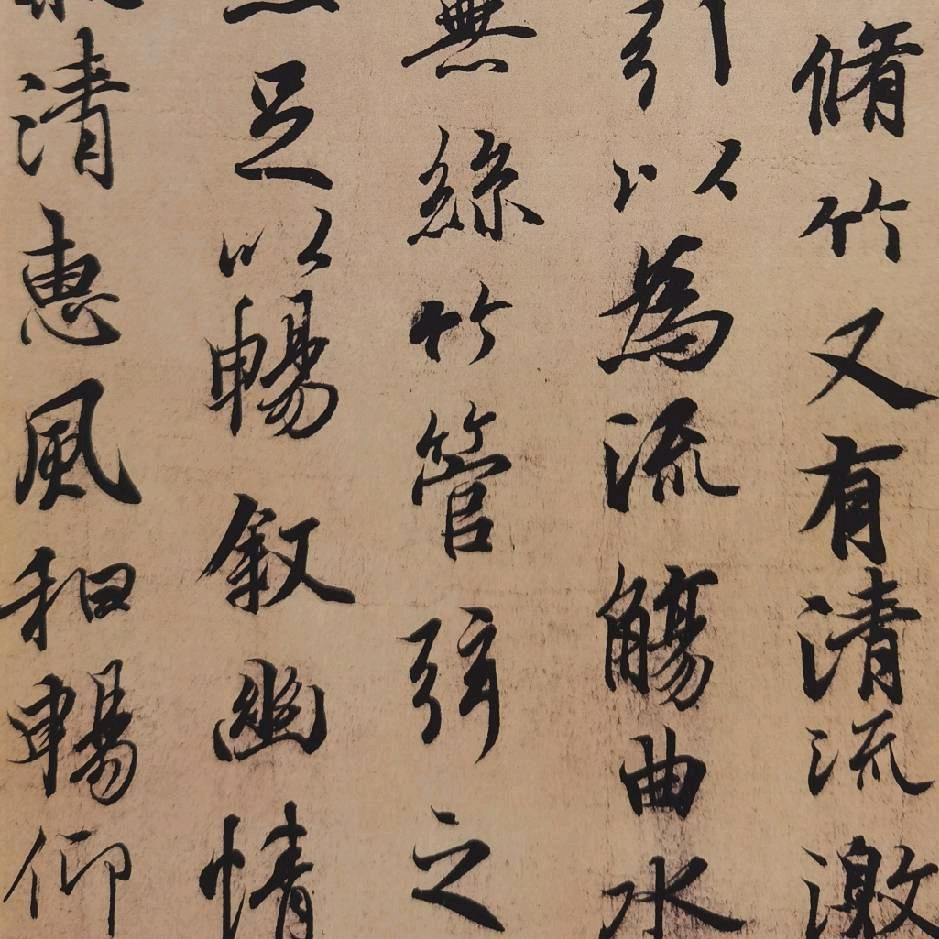 脩竹又有清流激
引以為流觴曲水
無絲竹管弦之
足以暢敘幽情
清惠風和暢仰